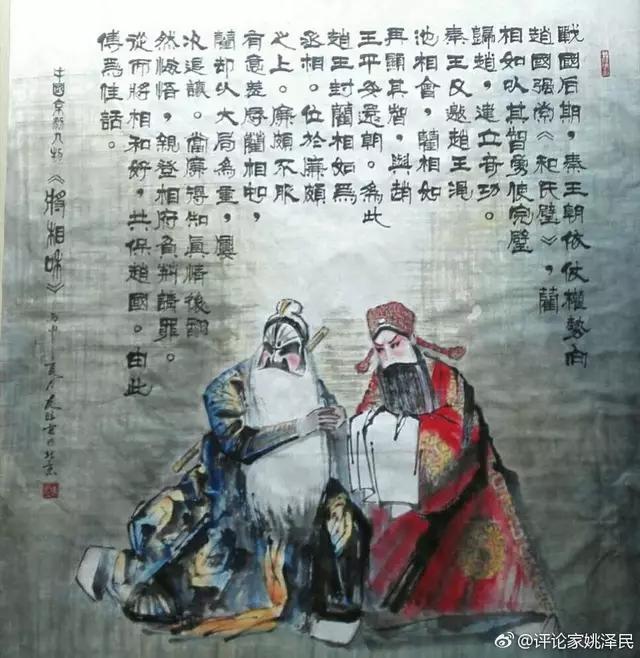 戰國后期，秦王朝依仗權勢向
趙國强索《和氏璧》，藺
相如以其智勇使完璧
歸趙，建立奇功。
秦王又邀趙王渑
池相會，藺相如
再顯其智，與趙
王平安還朝。為此
趙王封藺相如為
丞相。位於廉頗
之上。廉頗不服
有意羞辱藺相如，
藺却以大局為重，屢
次退讓。當廉得知真情後翻
然悔悟，親登相府負荆請罪。
從而將相和好，共保趙國。由此
傳為佳話。
中國京劇人物《將相和》丙申北京
@评论家姚泽民